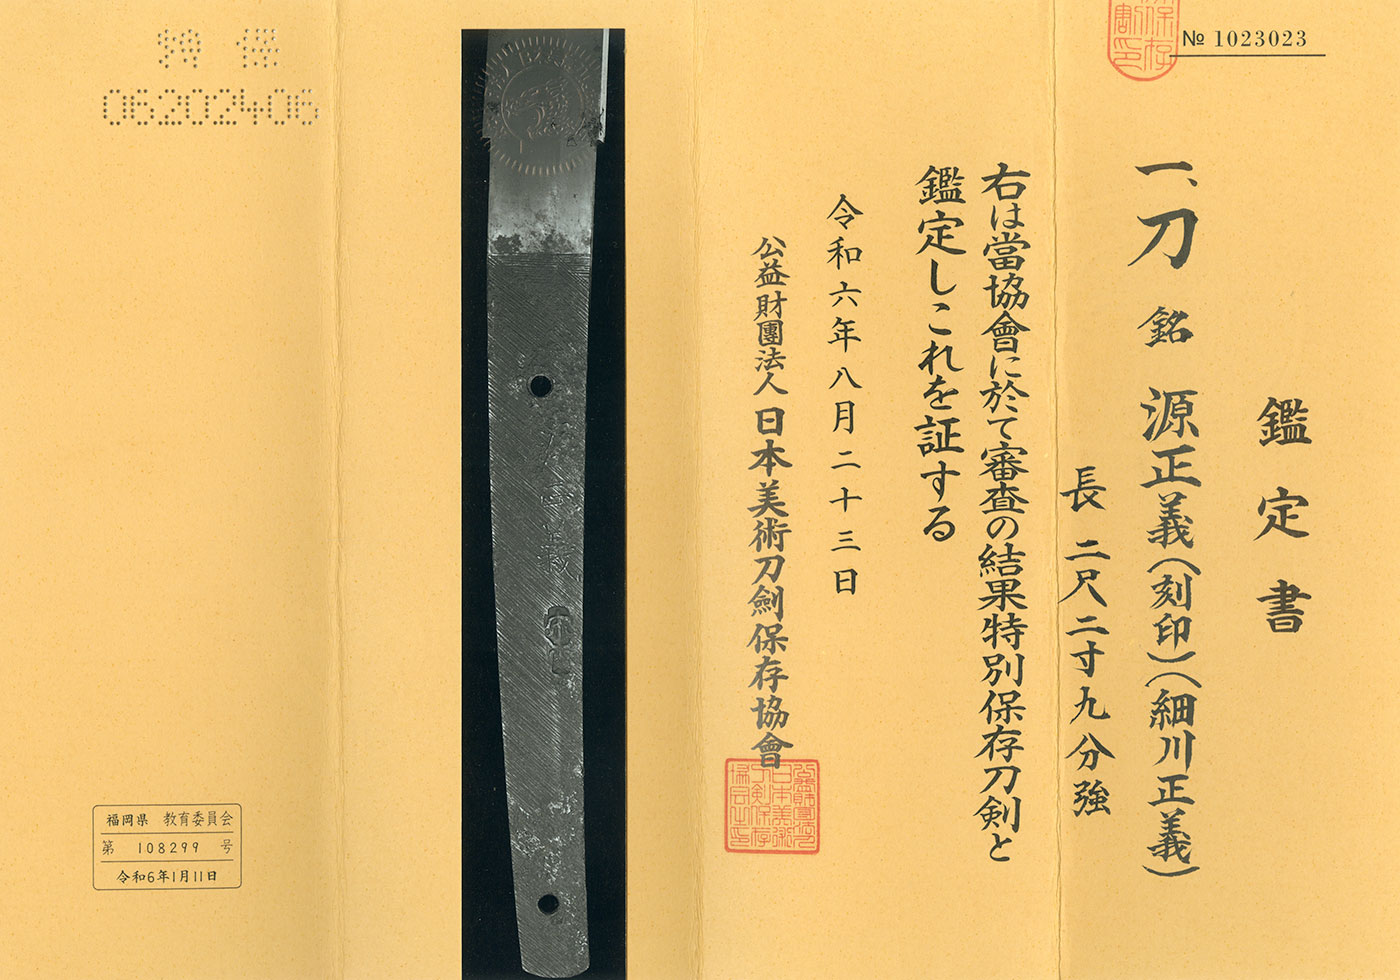 № 1023023
鑑定書
一、刀 銘 源正義(刻印)(細川正義)
長 二尺二寸九分強
右は當協會に於て審査の結果特別保存刀剣と
鑑定しこれを証する
令和六年八月二十三日
公益財團法人 日本美術刀劍保存協會
特保
06202406
福岡県 教育委員会
第 108299 号
令和6年1月11日